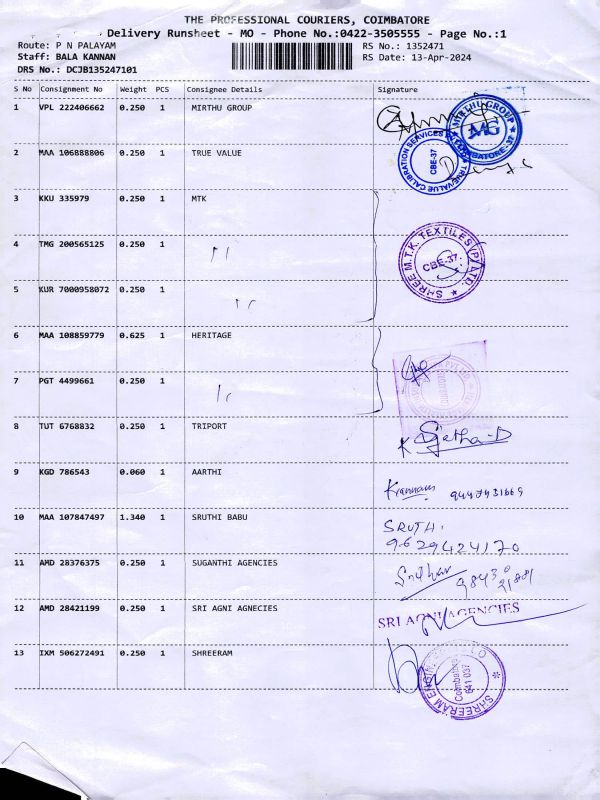 THE PROFESSIONAL COURIERS, COIMBATORE
Delivery Runsheet - MO - Phone No.:0422-3505555 - Page No.:1
Route: P N PALAYAM
RS No.: 1352471
Staff: BALA KANNAN
RS Date: 13-Apr-2024
DRS No.: DCJB135247101
S No Consignment No Weight PCS Consignee Details Signature
1 VPL 222406662 0.250 1 MIRTHU GROUP
MIRTHU GROUP MG COIMBATORE-37
2 MAA 106888806 0.250 1 TRUE VALUE
TRUE VALUE CALIBRATION SERVICES CBE-37
3 KKU 335979 0.250 1 MTK
4 TMG 200565125 0.250 1 " "
SHREE M.T.K TEXTILES (P) LTD. CBE-37.
5 KUR 7000958072 0.250 1 " "
6 MAA 108859779 0.625 1 HERITAGE
7 PGT 4499661 0.250 1 " "
8 TUT 6768832 0.250 1 TRIPORT
K Sujatha-D
9 KGD 786543 0.060 1 AARTHI
10 MAA 107847497 1.340 1 SRUTHI BABU
SRUTHI.
9629424170
11 AMD 28376375 0.250 1 SUGANTHI AGENCIES
Sridhar
12 AMD 28421199 0.250 1 SRI AGNI AGNECIES
SRI AGNI AGENCIES
13 IXM 506272491 0.250 1 SHREERAM
Coimbatore
641 037